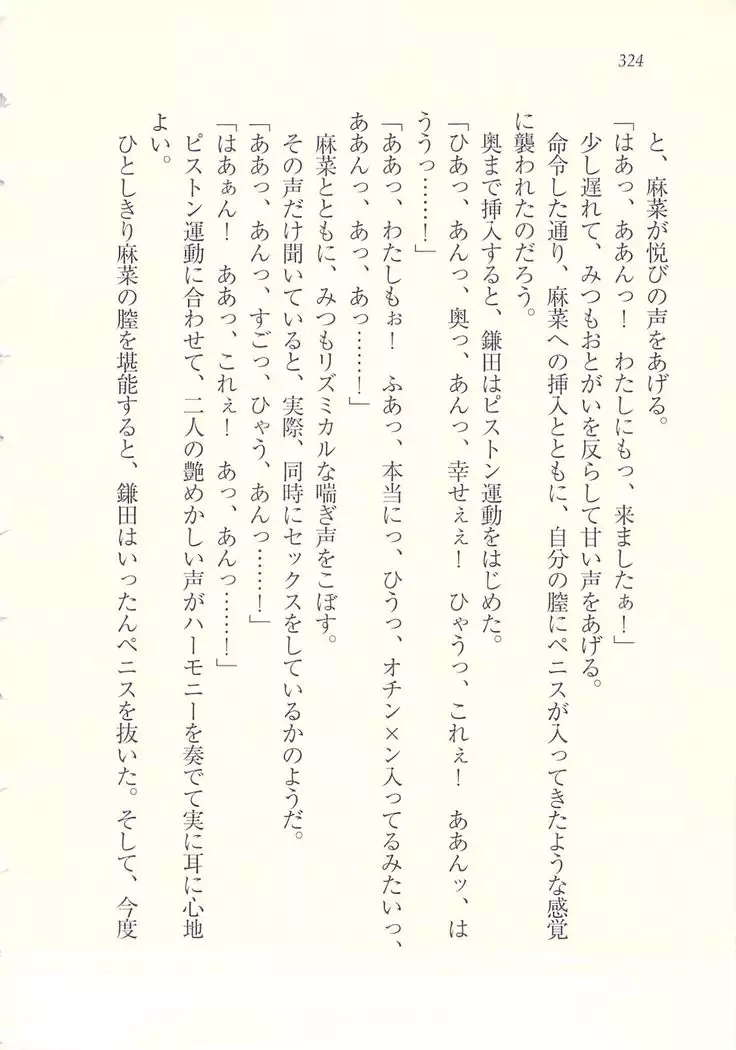 324
と、麻菜が悦びの声をあげる。
「はあっ、ああんっ！　わたしにもっ、来ましたぁ！」
少し遅れて、みつもおとがいを反らして甘い声をあげる。
命令した通り、麻菜への挿入とともに、自分の膣にペニスが入ってきたような感覚
に襲われたのだろう。
奥まで挿入すると、鎌田はピストン運動をはじめた。
「ひあっ、あんっ、奥っ、あんっ、幸せぇぇ！　ひゃうっ、これぇ！　ああんッ、は
ううっ……！」
「ああっ、わたしもぉ！　ふあっ、本当にっ、ひうっ、オチン×ン入ってるみたいっ、
ああんっ、あっ、あっ……！」
麻菜とともに、みつもリズミカルな喘ぎ声をこぼす。
その声だけ聞いていると、実際、同時にセックスをしているかのようだ。
「ああっ、あんっ、すごっ、ひゃう、あんっ……！」
「はあぁん！　ああっ、これぇ！　あっ、あんっ……！」
ピストン運動に合わせて、二人の艶めかしい声がハーモニーを奏でて実に耳に心地
よい。
ひとしきり麻菜の膣を堪能すると、鎌田はいったんペニスを抜いた。そして、今度